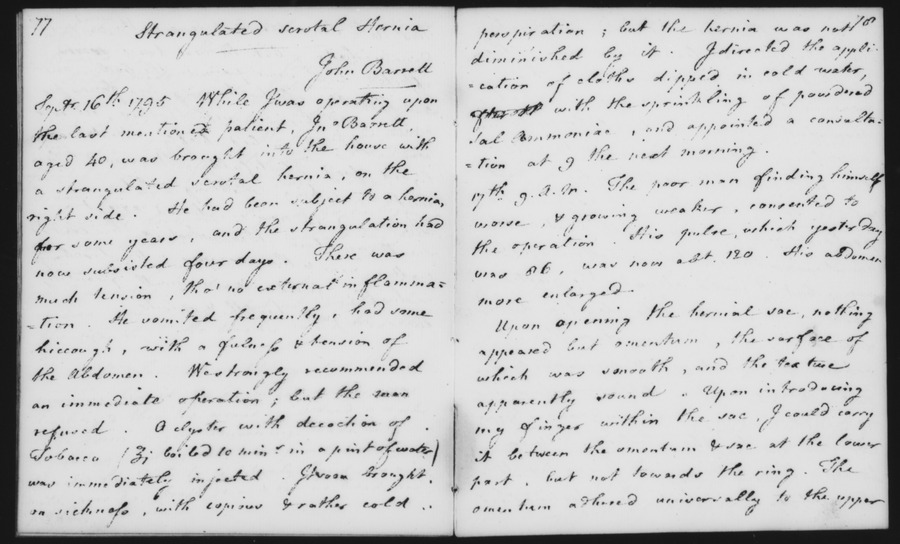 77
Strangulated scrotal Hernia
John Barrett
Septr. 16th 1795 While I was operating upon
the last mentioned patient, Jno Barrett,
aged 40, was brought into the house with
a strangulated scrotal hernia, on the
right side. He had been subject to a hernia,
for some years, and the strangulation had
now subsisted four days. There was
much tension, tho' no external inflamma=
=tion. He vomited frequently, had some
hiccough, with a fulness & tension of
the Abdomen. We strongly recommended
an immediate operation; but the man
refused. A clyster with decoction of
Tobacco (ʒj boiled 10 mins. in a pint of water)
was immediately injected. It soon brought
on sickness, with copious & rather cold
78
perspiration; but the hernia was not
diminished by it. I directed the appli-
=cation of cloths dipped in cold water,
with the sprinkling of powdered
Sal Ammoniac, and appointed a consulta-
=tion at 9 the next morning.
17th. 9. A.M. The poor man finding himself
worse, & growing weaker, consented to
the operation. His pulse, which yesterday
was 86, was now abt. 120. His abdomen
more enlarged.
Upon opening the hernial sac, nothing
appeared but omentum, the surface of
which was smooth, and the texture
apparently sound. Upon introducing
my finger within the sac, I could carry
it between the omentum & sac at the lower
part, but not towards the ring. The
omentum adhered universally to the upper